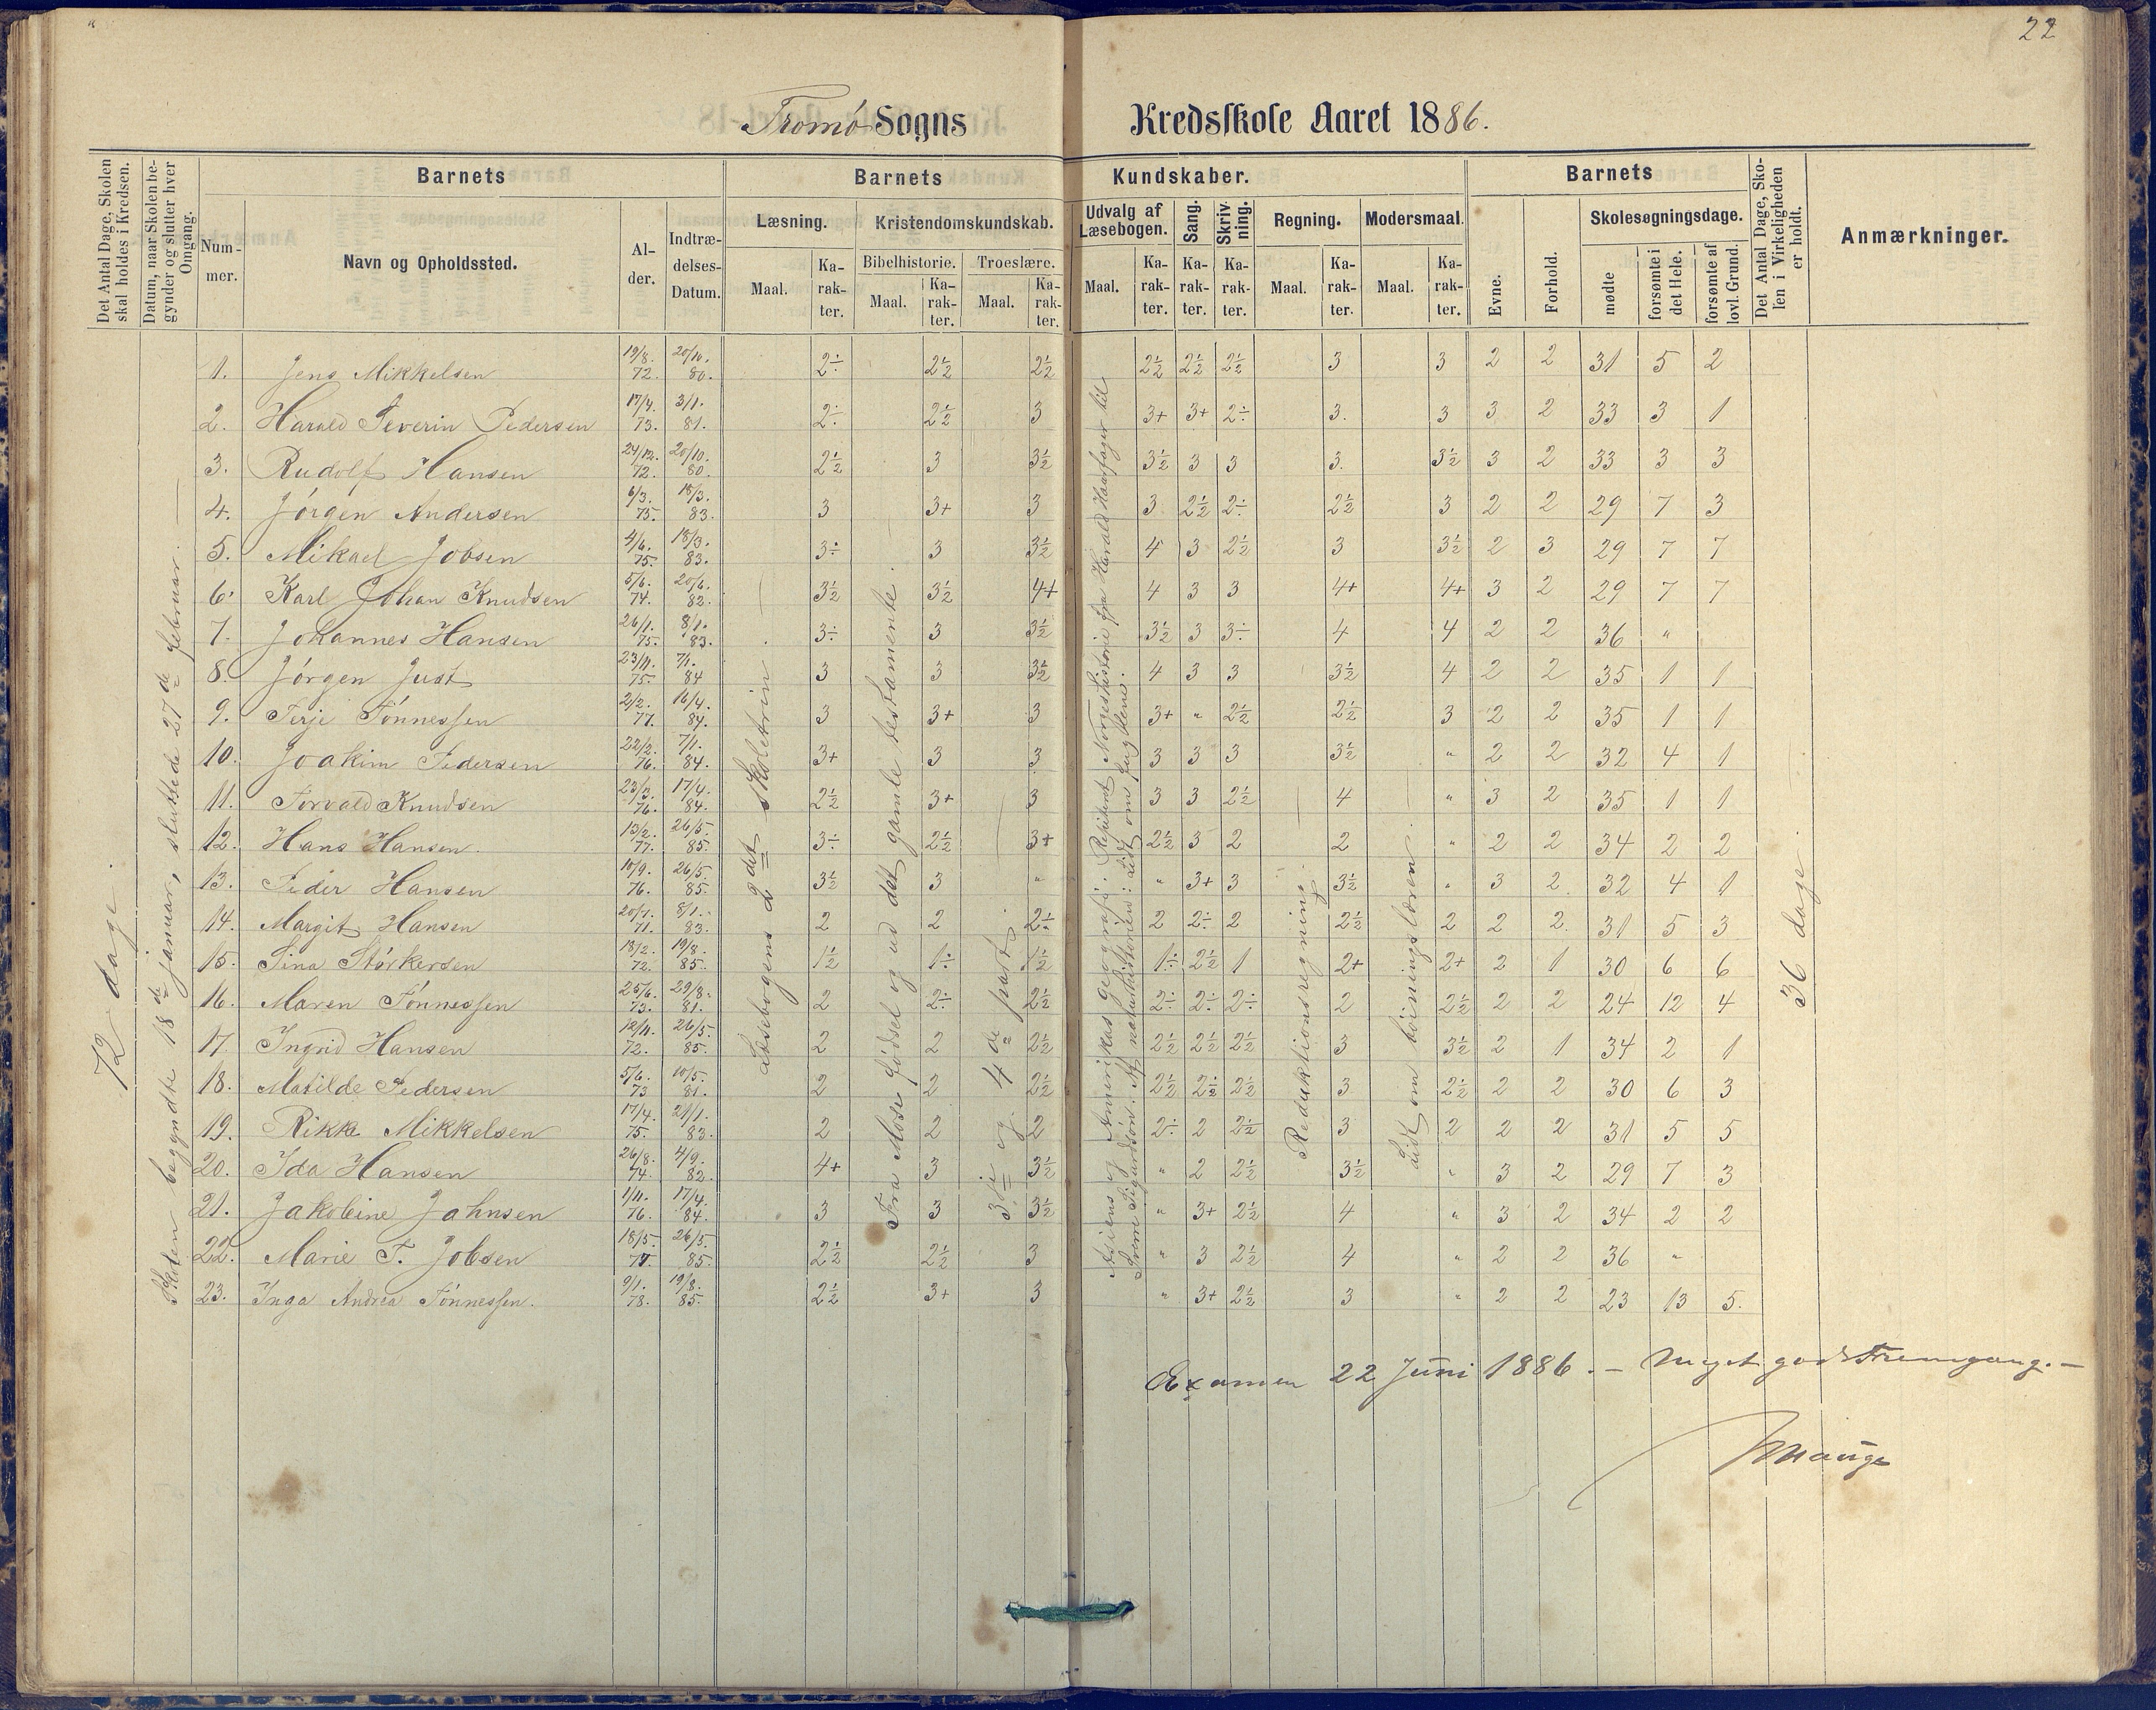 22
Tromø Sogns Kredsskole Aaret 1886.
Det Antal Dage, Skolen skal holdes i Kredsen.
Datum, naar Skolen begynder og slutter hver Omgang.
Barnets
Num-mer.
Navn og Opholdssted.
Al-der.
Indtræ-delses-Datum.
Barnets Kundskaber.
Læsning.
Maal.
Ka-rak-ter.
Kristendomskundskab.
Bibelhistorie.
Maal.
Ka-rak-ter.
Troeslære.
Maal.
Ka-rak-ter.
Udvalg af Læsebogen.
Maal.
Ka-rak-ter.
Sang.
Ka-rak-ter.
Skriv-ning.
Ka-rak-ter.
Regning.
Maal.
Ka-rak-ter.
Modersmaal.
Maal.
Ka-rak-ter.
Barnets
Evne.
Forhold.
Skolesøgningsdage.
mødte
forsømte i det Hele.
forsømte af lovl. Grund.
Det Antal Dage, Sko-len i Virkeligheden er holdt.
Anmærkninger.
72 dage.
Skolen begyndte 18de januar, sluttede 27de februar.
Læsebogens 2det skoletrin
Fra Mose fødsel og ud det gamle testamente.
3je og 4de part.
Asiens og Amerikas geografi. Repetert Norgeshistorie fra Harald Haarfager til
Sverre Sigurdson. Af naturhistorien: Lidt om fuglene.
Reduktionsregning.
Lidt om bøiningslæren.
36 dage.
1. Jens Mikkelsen 19/8. 72. 20/10. 80. 2÷ 2½ 2½ 2½ 2½ 2½ 3 3 2 2 31 5 2
2. Harald Severin Pedersen 17/4. 73. 3/1. 81. 2÷ 2½ 3 3+ 3+ 2÷ 3. 3 3 2 33 3 1
3. Rudolf Hansen 24/12. 72. 20/10. 80 2½ 3 3½ 3½ 3 3 3. 3½ 3 2 33 3 3
4. Jørgen Andersen 6/3. 75. 18/3. 83. 3 3+ 3 3 2½ 2÷ 2½ 3 2 2 29 7 3
5. Mikael Jobsen 4/6. 75. 18/3. 83. 3÷ 3 3½ 4 3 2½ 3 3½ 2 3 29 7 7
6. Karl Johan Knudsen 5/6. 74. 20/6. 82. 3½ 3½ 4+ 4 3 3 4+ 4+ 3 2 29 7 7
7. Johannes Hansen 26/1. 75. 8/1. 83. 3÷ 3 3½ 3½ 3 3÷ 4 4 2 2 36 "
8. Jørgen Just 23/11. 75. 7/1. 84 3 3 3½ 4 3 3 3½ 4 2 2 35 1 1
9. Terje Tønnessen 2/2. 77. 16/4. 84. 3 3+ 3 3+ " 2½ 2½ 3 2 2 35 1 1
10. Joakim Pedersen 22/2. 76. 7/1. 84. 3+ 3 3 3 3 3 3½ " 2 2 32 4 1
11. Torvald Knudsen 23/3. 76. 17/4. 84. 2½ 3+ 3 3 3 2½ 4 " 3 2 35 1 1
12. Hans Hansen. 13/2. 77. 26/5. 85. 3÷ 2½ 3+ 2½ 3 2 2 " 2 2 34 2 2
13. Peder Hansen 10/9. 76. 26/5. 85. 3½ 3 " " 3+ 3 3½ " 3 2 32 4 1
14. Margit Hansen 20/7. 71. 8/1. 83. 2 2 2÷ 2 2÷ 2 2½ 2 2 2 31 5 3
15. Sina Størkersen 18/2. 72. 19/8. 85. 1½ 1÷ 1½ 1÷ 2½ 1 2+ 2+ 2 1 30 6 6
16. Maren Tønnessen 25/6. 73. 29/8. 81. 2 2÷ 2½ 2÷ 2÷ 2÷ 2 2½ 2 2 24 12 4
17. Ingrid Hansen 12/11. 72. 26/5. 85. 2 2 2½ 2½ 2½ 2½ 3 3½ 2 1 34 2 1
18. Matilde Pedersen 5/6. 73 10/5. 81. 2 2 2½ 2½ 2½ 2½ 3 2½ 2 2 30 6 3
19. Rikke Mikkelsen 17/4. 75. 21/1. 83. 2 2 2 2÷ 2 2½ 3 2 2 2 31 5 5
20. Ida Hansen 26/8. 74. 4/9. 82. 4+ 3 3½ " 2 2½ 3½ " 3 2 29 7 3
21. Jakobine Jahnsen 1/11. 76. 17/4. 84. 3 3 3½ " 3+ 2½ 4 " 3 2 34 2 2
22. Marie T. Jobsen 18/5. 26/5. 85. 2½ 2½ 3 " 3 2½ 4 " 2 2 36 "
23. Inga Andrea Tønnessen. 9/1. 78. 19/8. 85. 2½ 3+ 3 " 3+ 2½ 3 " 2 2 23 13 5.
Examen 22 Juni 1886. – Meget god Fremgang. –